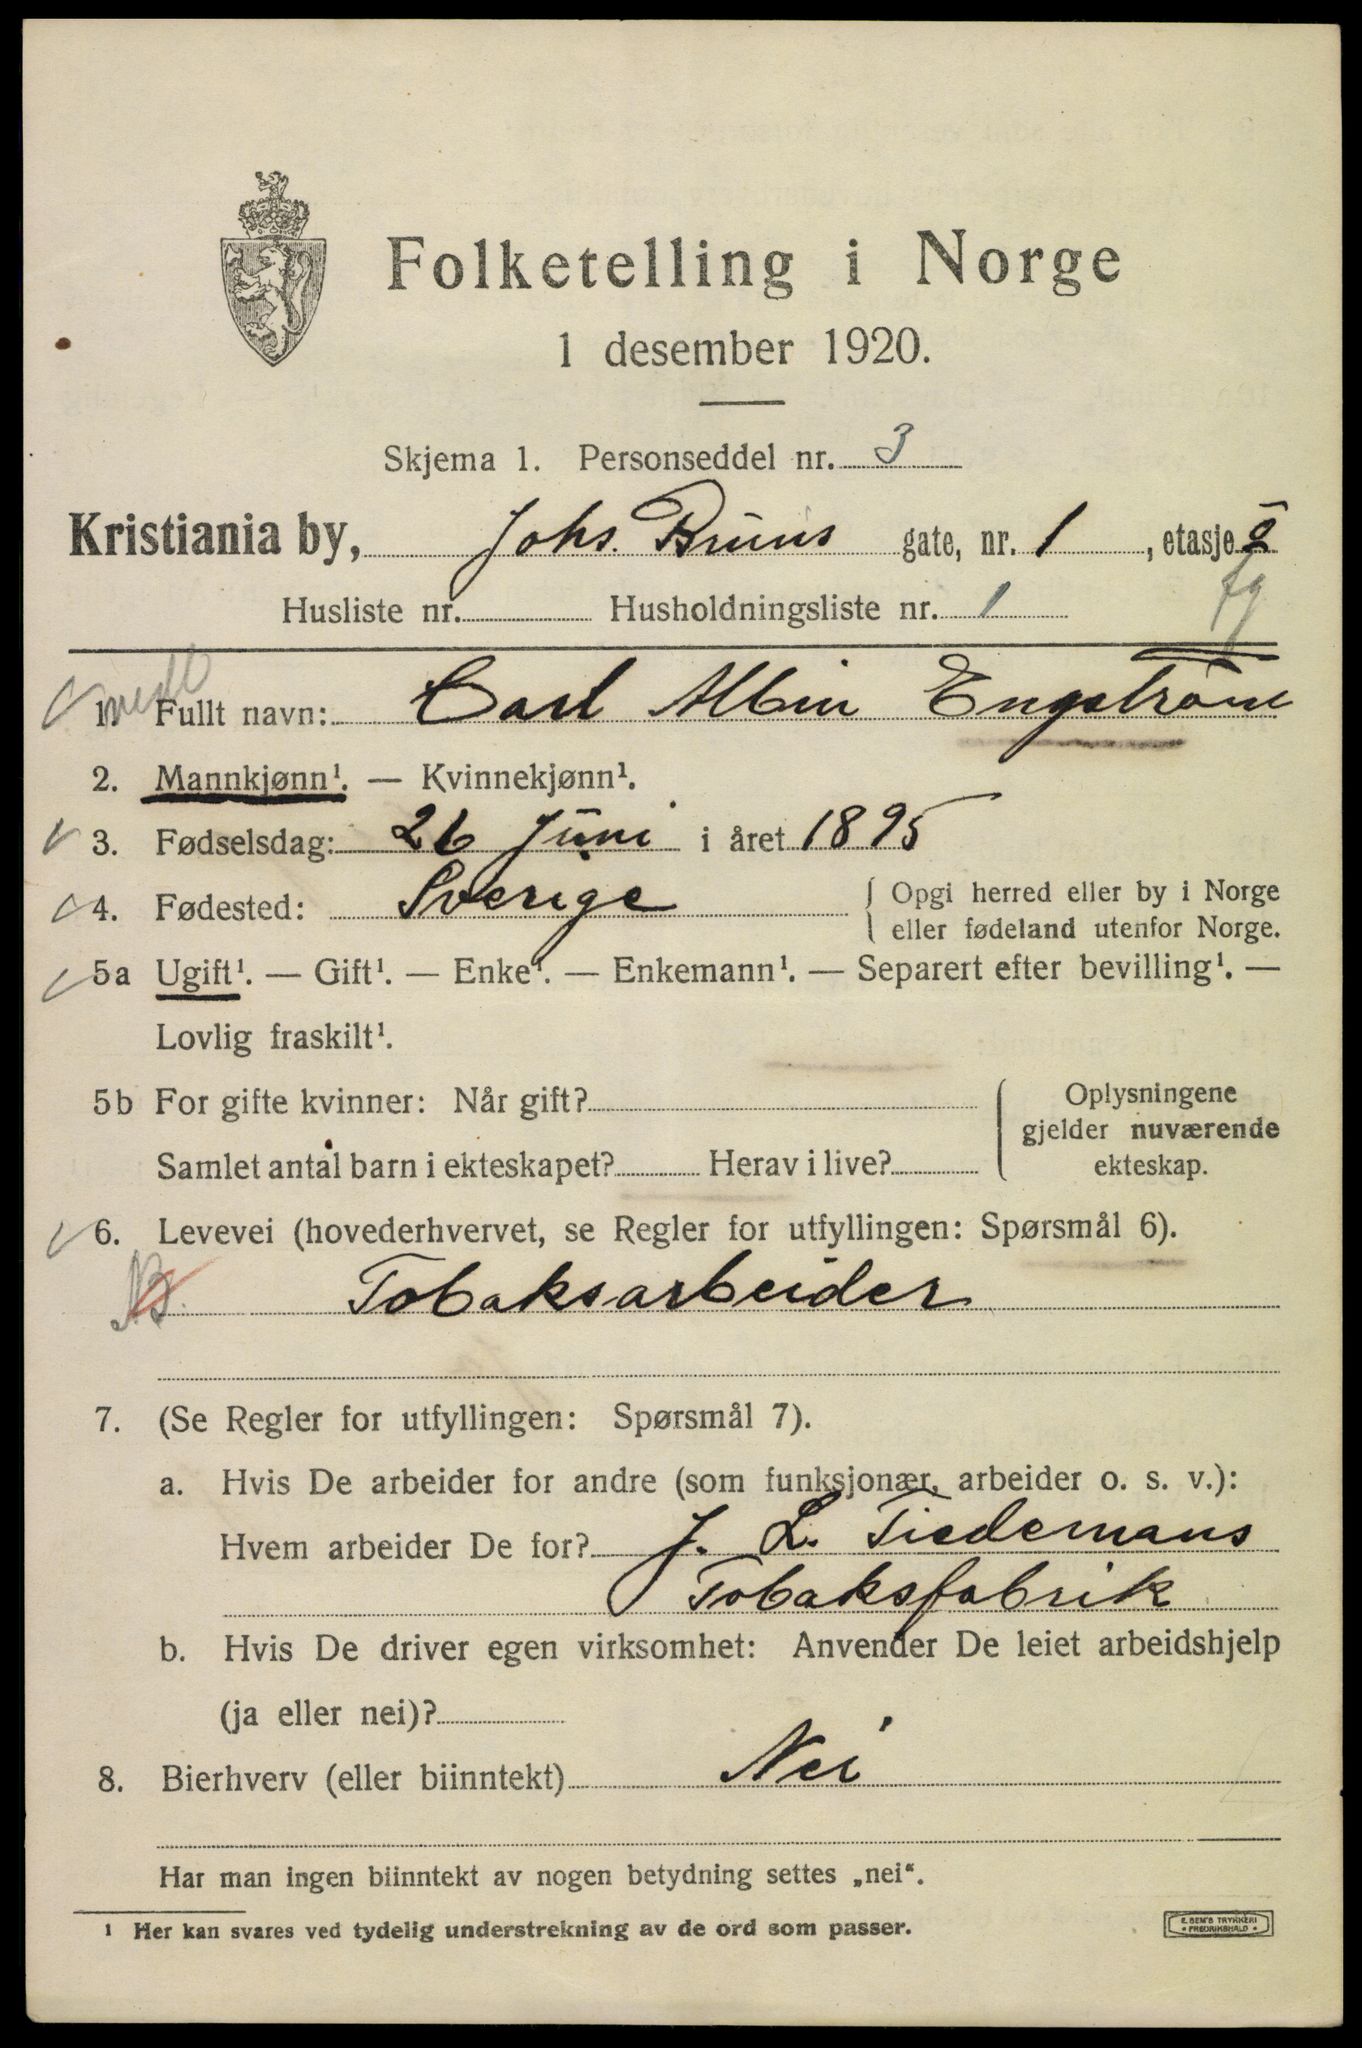 Folketelling i Norge
1 desember 1920.
Skjema 1. Personseddel nr. 3
Kristiania by, Johs. Bruns gate, nr. 1, etasje
Husliste nr. Husholdningsliste nr. 1
1. Fullt navn: Carl Albin Engström
2. Mannkjønn¹. — Kvinnekjønn¹.
3. Fødselsdag: 26 Juni i året 1895
4. Fødested: Sverige
{ Opgi herred eller by i Norge
eller fødeland utenfor Norge.
5a Ugift¹. — Gift¹. — Enke¹. — Enkemann¹. — Separert efter bevilling¹. —
Lovlig fraskilt¹.
5b For gifte kvinner: Når gift?
Samlet antal barn i ekteskapet? Herav i live?
Oplysningene
gjelder nuværende
ekteskap.
6. Levevei (hovederhvervet, se Regler for utfyllingen: Spørsmål 6).
Tobaksarbeider
7. (Se Regler for utfyllingen: Spørsmål 7).
a. Hvis De arbeider for andre (som funksjonær, arbeider o. s. v.):
Hvem arbeider De for? J. L. Tiedemans
Tobaksfabrik
b. Hvis De driver egen virksomhet: Anvender De leiet arbeidshjelp
(ja eller nei)?
8. Bierhverv (eller biinntekt) Nei
Har man ingen biinntekt av nogen betydning settes „nei“.
¹ Her kan svares ved tydelig understrekning av de ord som passer.
E. SEM'S TRYKKERI
• FREDRIKSHALD •